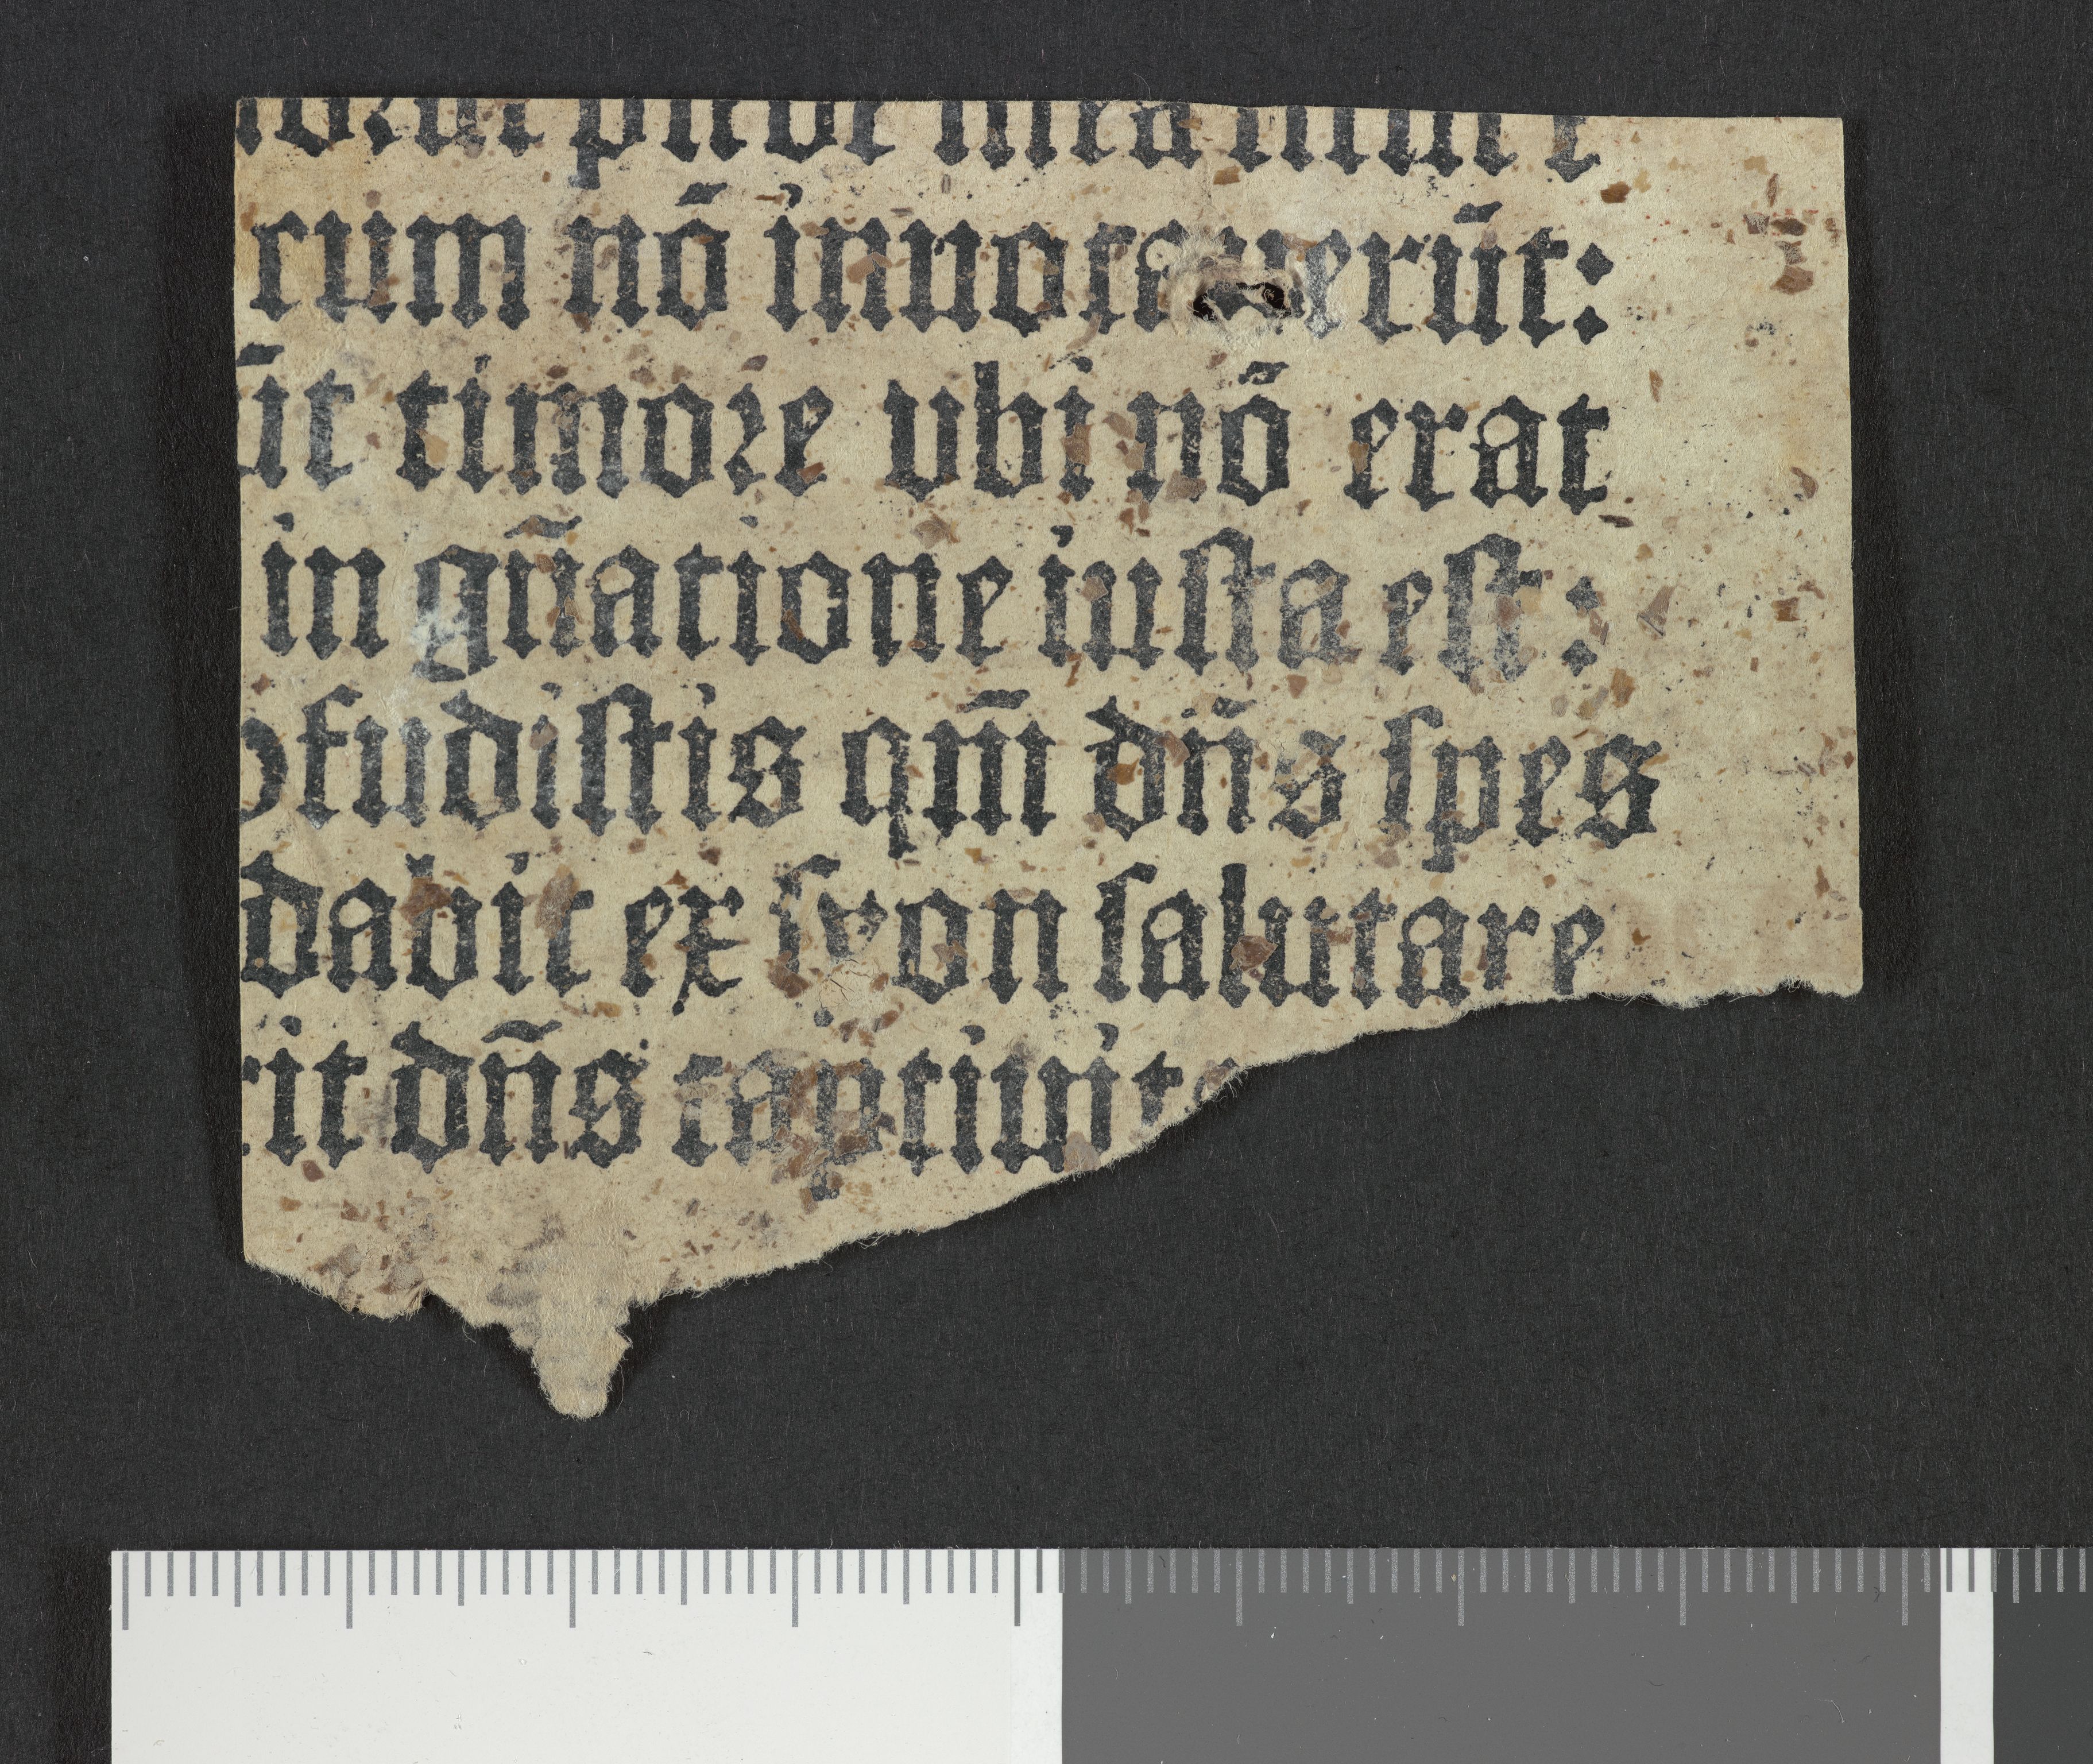 cum nō innotuerūt:
ūt timore vbi nō erat
in gn̄atione iusta est:
ofudistis qm̄ dn̄s spes
dabit ex syon salutare
rit dn̄s captiuita